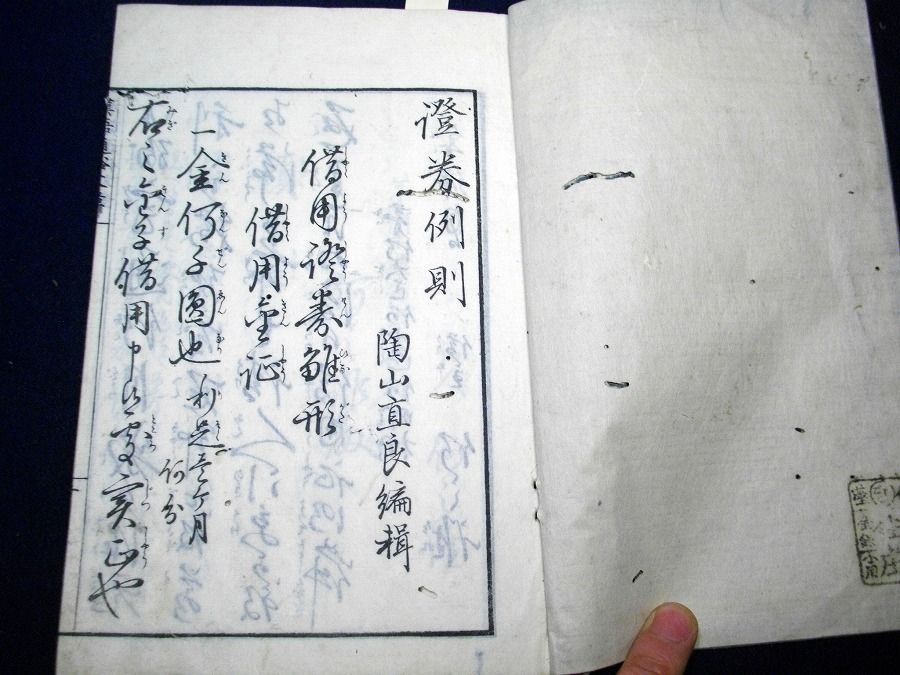 證券例則
陶山直良編輯
借用證券雛形
借用金証
一金何千圓也 利足壱ケ月
何分
右之金子借用申処実正也